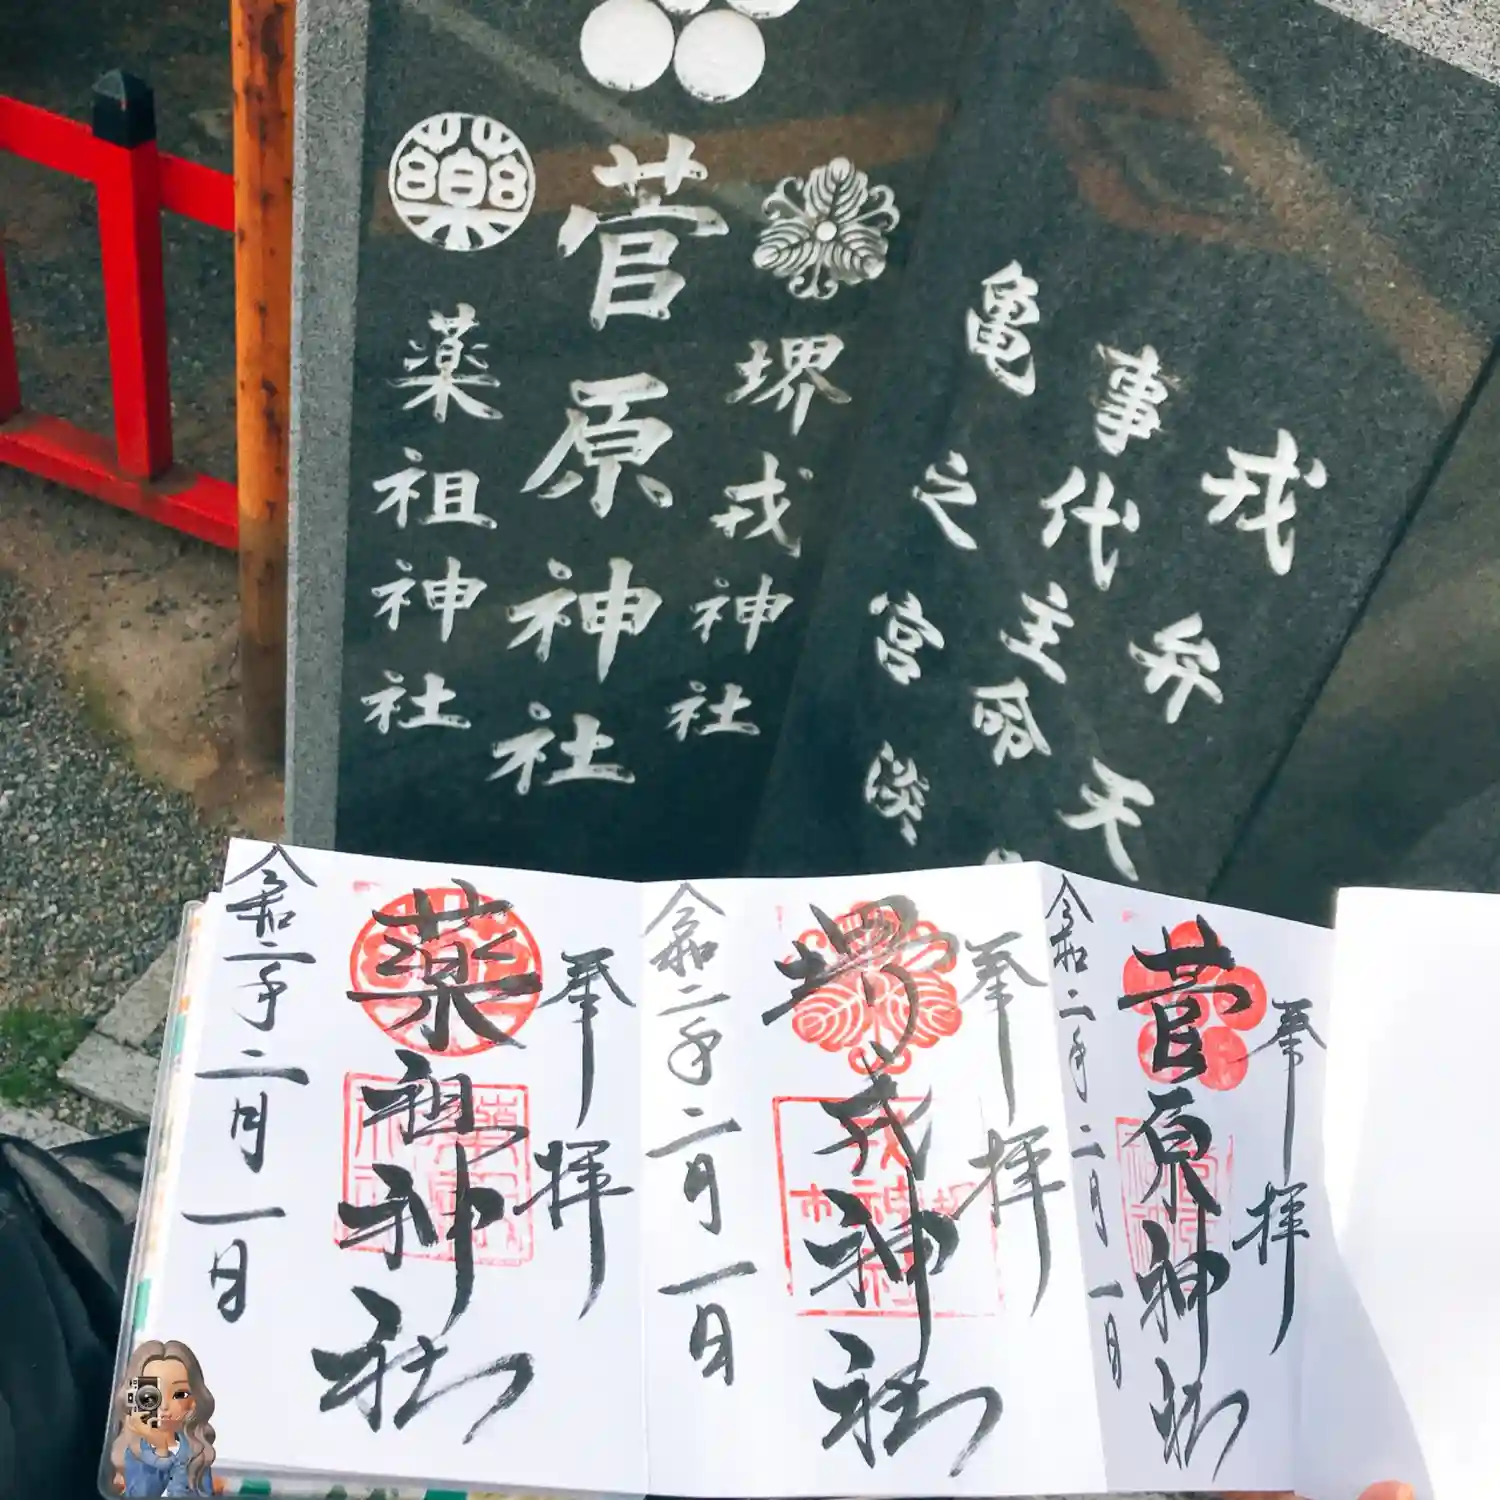 戎
弁
天
事
代
主
命
亀
之
宮
淡
堺戎神社
菅原神社
薬
薬祖神社
奉拝
菅原神社
令和二年二月一日
奉拝
堺戎神社
令和二年二月一日
奉拝
薬祖神社
令和二年二月一日